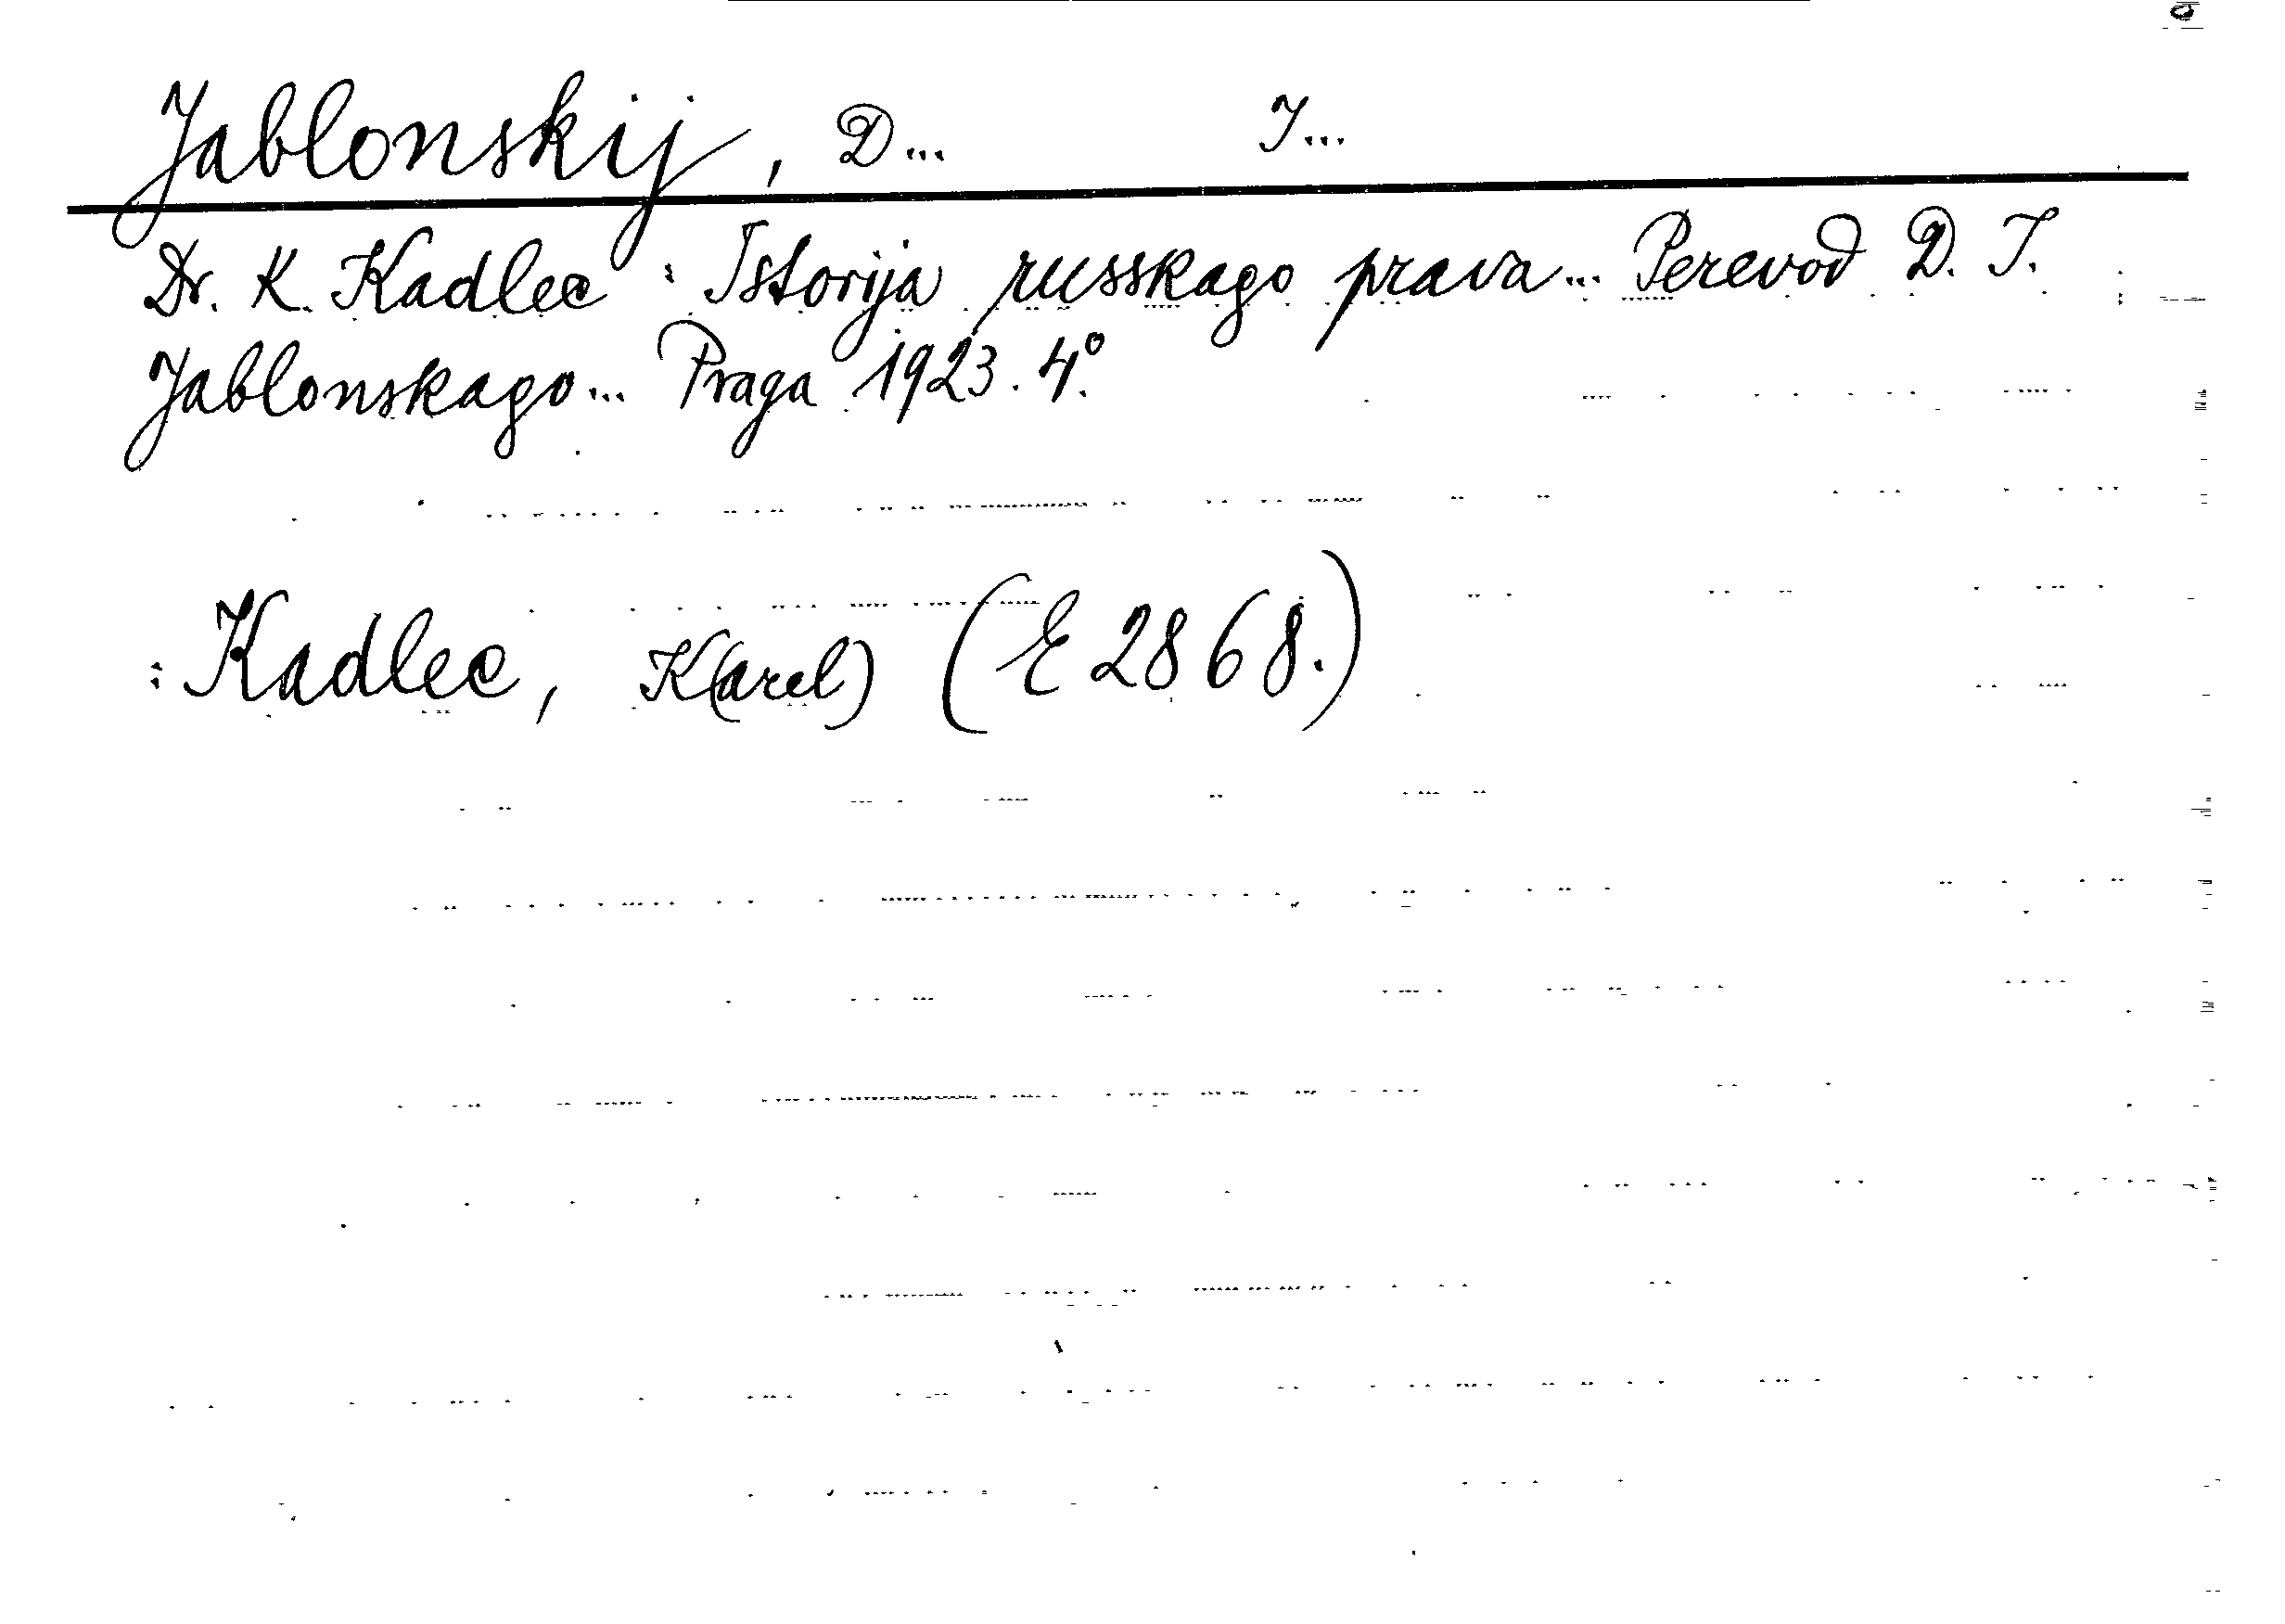 Jablonskij, D... I...
Dr. K. Kadlec : Istorija russkago prava... Perevod D. I.
Jablonskago... Praga 1923. 4°.
: Kadlec, K(arel) (E 2868.)